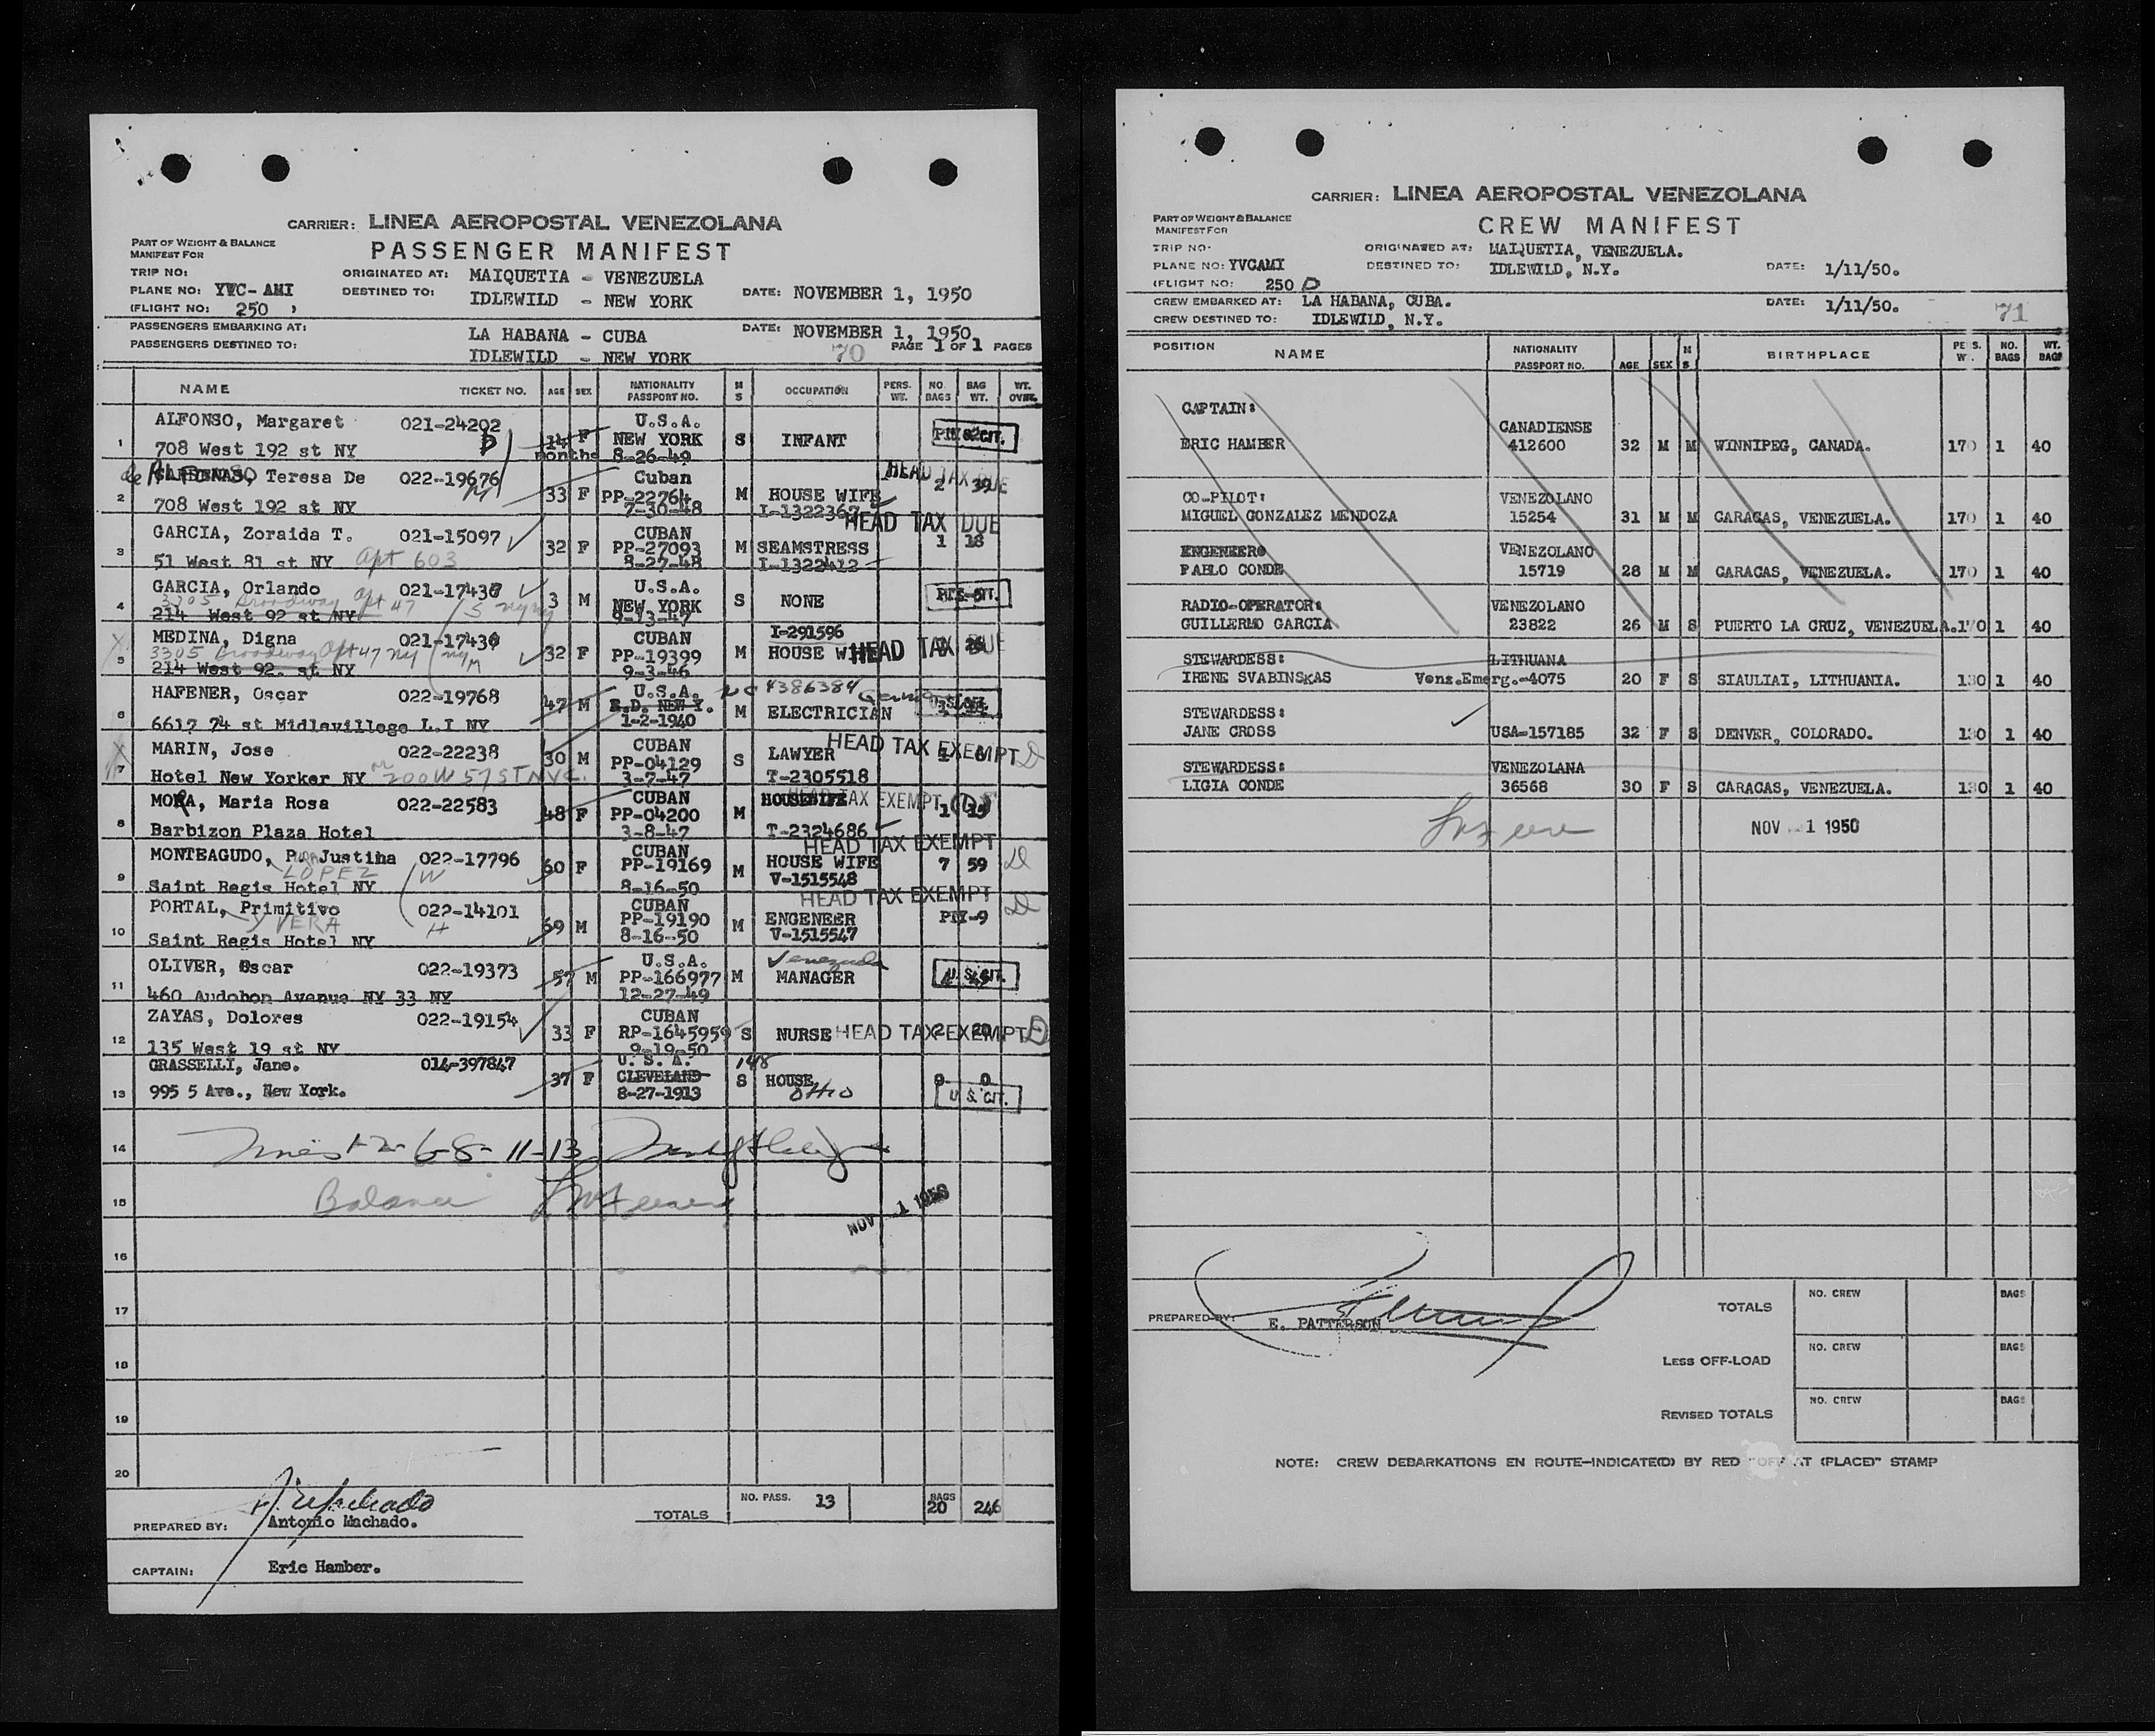 CARRIER: LINEA AEROPOSTAL VENEZOLANA
PART OF WEIGHT & BALANCE
MANIFEST FOR
PASSENGER MANIFEST
TRIP NO:
ORIGINATED AT: MAIQUETIA - VENEZUELA
PLANE NO: YVC- AMI
DESTINED TO: IDLEWILD - NEW YORK
DATE: NOVEMBER 1, 1950
(FLIGHT NO: 250 )
PASSENGERS EMBARKING AT: LA HABANA - CUBA
DATE: NOVEMBER 1, 1950
PASSENGERS DESTINED TO: IDLEWILD - NEW YORK
70
PAGE 1 OF 1 PAGES
NAME TICKET NO. AGE SEX NATIONALITY PASSPORT NO. M S OCCUPATION PERS. WT. NO. BAGS BAG WT. WT. OVER.
ALFONSO, Margaret 021-24202 U.S.A.
1 14 F NEW YORK S INFANT
708 West 192 st NY months 8-26-49
de ALFONSO, Teresa De 022-19676 Cuban HEAD TAX DUE
2 33 F PP-22764 M HOUSE WIFE 2 39
708 West 192 st NY 7-30-48 I-1322367
GARCIA, Zoraida T. 021-15097 CUBAN HEAD TAX DUE
3 32 F PP-27093 M SEAMSTRESS 1 18
51 West 81 st NY Apt 603 8-27-48 I-1322412
GARCIA, Orlando U.S.A.
3305 Broadway Apt 47
4 3 M NEW YORK S NONE
214 West 92 st NY 9-13-47
MEDINA, Digna CUBAN I-291596
3305 Broadway Apt 47 NY
5 32 F PP-19399 M HOUSE WIFE HEAD TAX DUE
214 West 92. st NY 9-3-46
HAFENER, Oscar 022-19768 U.S.A. NC 4386384
6 47 M NEW Y. M ELECTRICIAN
6617 74 st Midlevillege L.I NY 1-2-1940
MARIN, Jose 022-22238 CUBAN HEAD TAX EXEMPT D
7 30 M PP-04129 S LAWYER
Hotel New Yorker NY 200 W 57 ST NYC. 3-7-47 T-2305518
MORA, Maria Rosa 022-22583 CUBAN HOUSEWIFE HEAD TAX EXEMPT
8 48 F PP-04200 M 1 15
Barbizon Plaza Hotel 3-8-47 T-2324686
MONTEAGUDO, P. Justina 022-17796 CUBAN HEAD TAX EXEMPT
LOPEZ W
9 60 F PP-19169 M HOUSE WIFE 7 59 D
Saint Regis Hotel NY 8-16-50 V-1515548
PORTAL, Primitivo 022-14101 CUBAN HEAD TAX EXEMPT D
Y VERA H
10 69 M PP-19190 M ENGENEER
Saint Regis Hotel NY 8-16-50 V-1515547
OLIVER, Oscar 022-19373 U.S.A. Venezuela
11 57 M PP-166977 M MANAGER U.S. CIT.
460 Audobon Avenue NY 33 NY 12-27-49
ZAYAS, Dolores 022-19154 CUBAN
12 33 F RP-1645959 S NURSE HEAD TAX EXEMPT 2 20 D
135 West 19 st NY 9-19-50
GRASSELLI, Jane. 014-397847 U. S. A.
13 37 F CLEVELAND S HOUSE Ohio 0 0
995 5 Ave., New York. 8-27-1913 U.S. CIT.
14 1-2-6-8-11-13
15 Balance NOV 1 1950
16
17
18
19
20
TOTALS NO. PASS. 13 BAGS 20 246
A. Machado
PREPARED BY: Antonio Machado.
CAPTAIN: Eric Hamber.
CARRIER: LINEA AEROPOSTAL VENEZOLANA
PART OF WEIGHT & BALANCE
MANIFEST FOR
CREW MANIFEST
TRIP NO-
ORIGINATED AT: MAIQUETIA, VENEZUELA.
PLANE NO: YVCAMI
DESTINED TO: IDLEWILD, N.Y.
DATE: 1/11/50.
(FLIGHT NO: 250 D
CREW EMBARKED AT: LA HABANA, CUBA.
DATE: 1/11/50.
CREW DESTINED TO: IDLEWILD, N.Y.
71
POSITION NAME NATIONALITY PASSPORT NO. AGE SEX M S BIRTHPLACE PERS. W. NO. BAGS WT. BAGS
CAPTAIN: CANADIENSE
ERIC HAMBER 412600 32 M M WINNIPEG, CANADA. 170 1 40
CO-PILOT: VENEZOLANO
MIGUEL GONZALEZ MENDOZA 15254 31 M M CARACAS, VENEZUELA. 170 1 40
ENGENEER: VENEZOLANO
PABLO CONDE 15719 28 M M CARACAS, VENEZUELA. 170 1 40
RADIO-OPERATOR: VENEZOLANO
GUILLERMO GARCIA 23822 26 M S PUERTO LA CRUZ, VENEZUELA. 170 1 40
STEWARDESS: LITHUANA
IRENE SVABINSKAS Venz.Emerg.-4075 20 F S SIAULIAI, LITHUANIA. 130 1 40
STEWARDESS:
JANE CROSS USA-157185 32 F S DENVER, COLORADO. 130 1 40
STEWARDESS: VENEZOLANA
LIGIA CONDE 36568 30 F S CARACAS, VENEZUELA. 130 1 40
NOV 1 1950
PREPARED BY: E. PATTERSON
TOTALS NO. CREW BAGS
LESS OFF-LOAD NO. CREW BAGS
REVISED TOTALS NO. CREW BAGS
NOTE: CREW DEBARKATIONS EN ROUTE-INDICATE(D) BY RED "OFF AT (PLACE)" STAMP